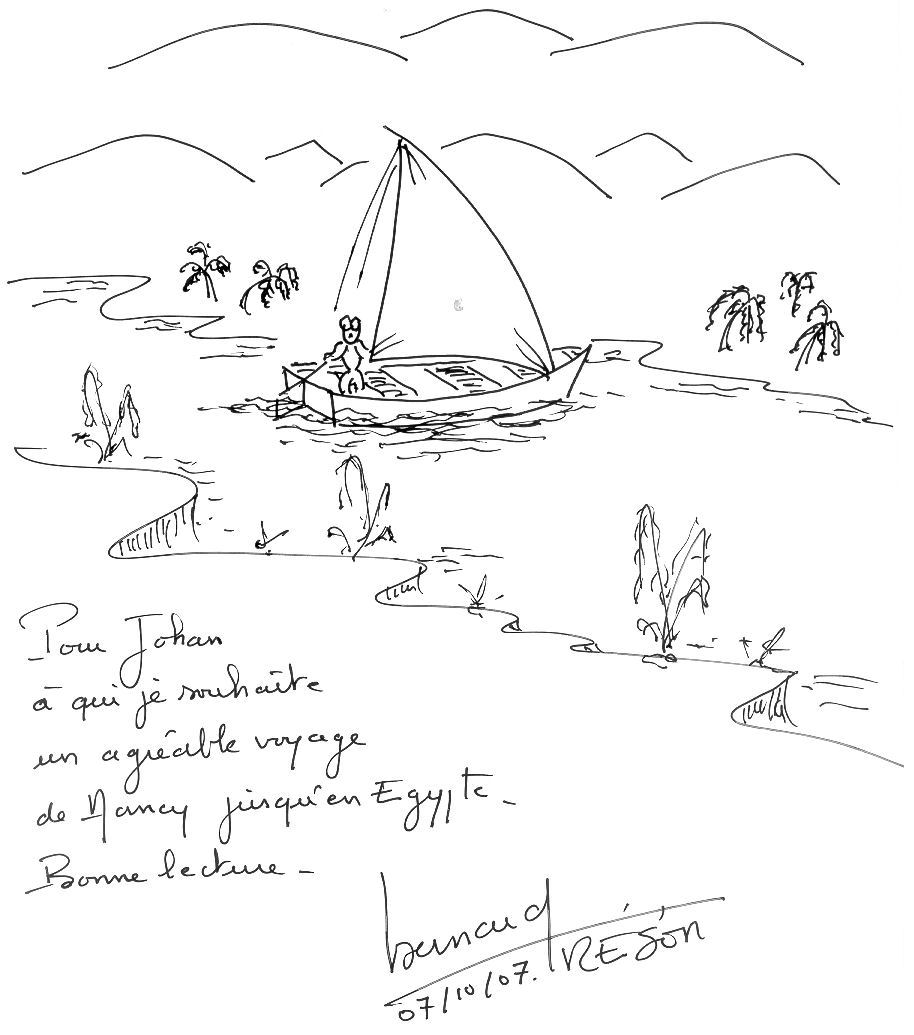 Pour Johan
à qui je souhaite
un agréable voyage
de Nancy jusqu'en Egypte_
Bonne lecture_
bernard RÉSÓN
07/10/07.